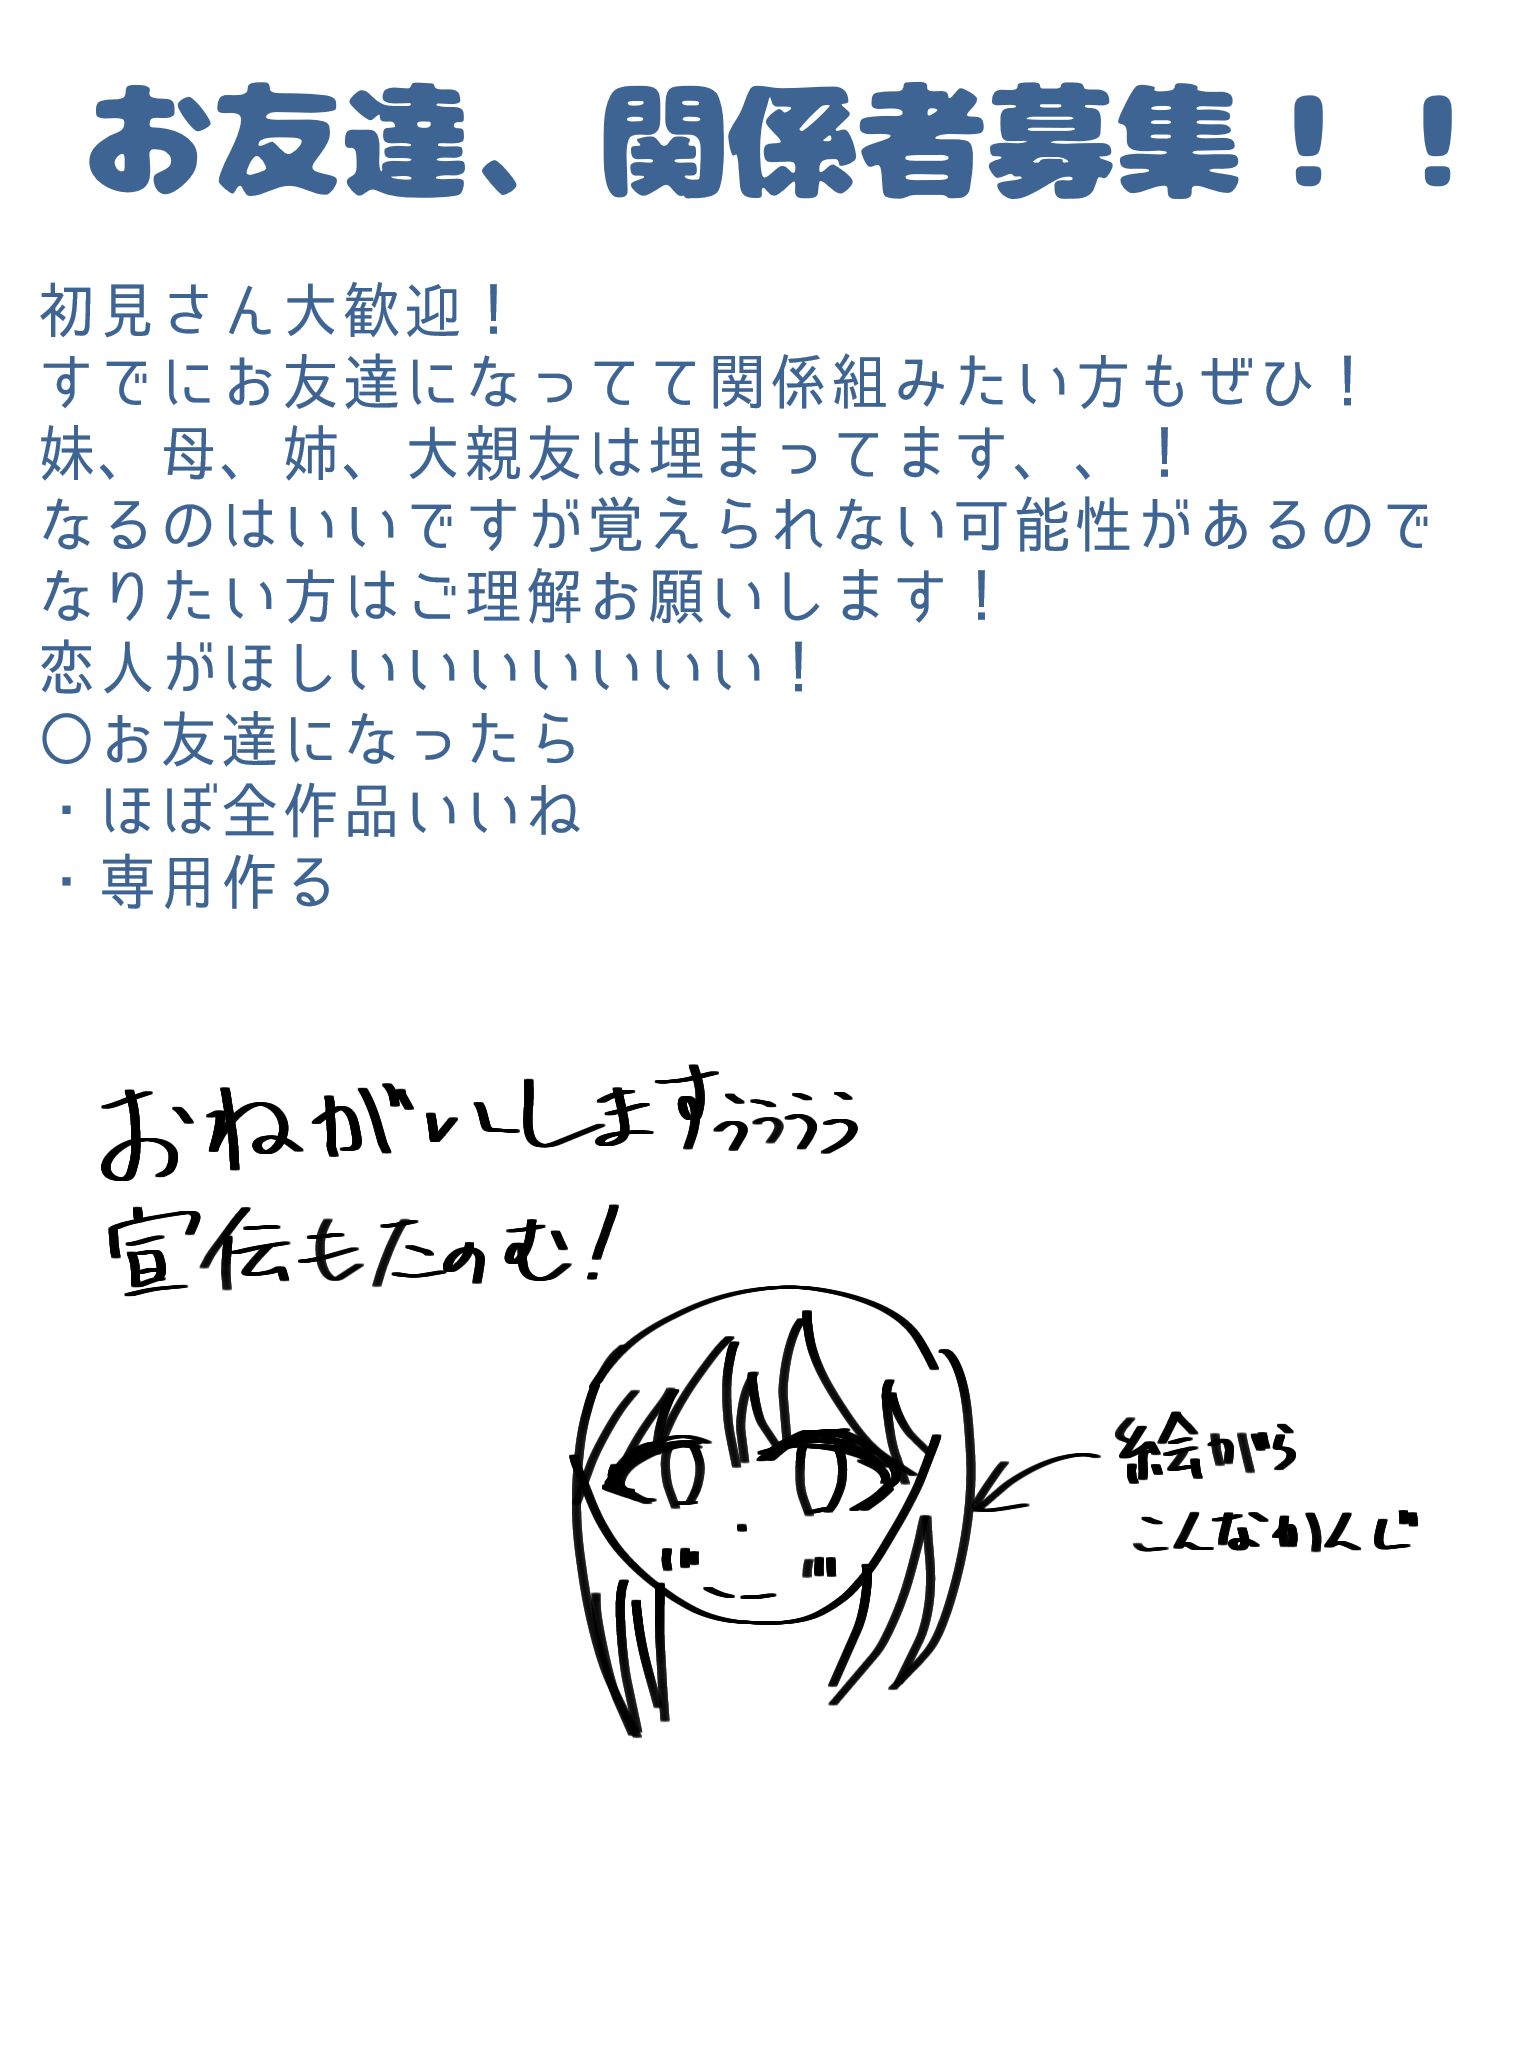 お友達、関係者募集！！
初見さん大歓迎！
すでにお友達になってて関係組みたい方もぜひ！
妹、母、姉、大親友は埋まってます、、！
なるのはいいですが覚えられない可能性があるので
なりたい方はご理解お願いします！
恋人がほしいいいいいいい！
〇お友達になったら
・ほぼ全作品いいね
・専用作る
おねがいしますぅぅぅぅ
宣伝もたのむ！
絵がら
こんなかんじ